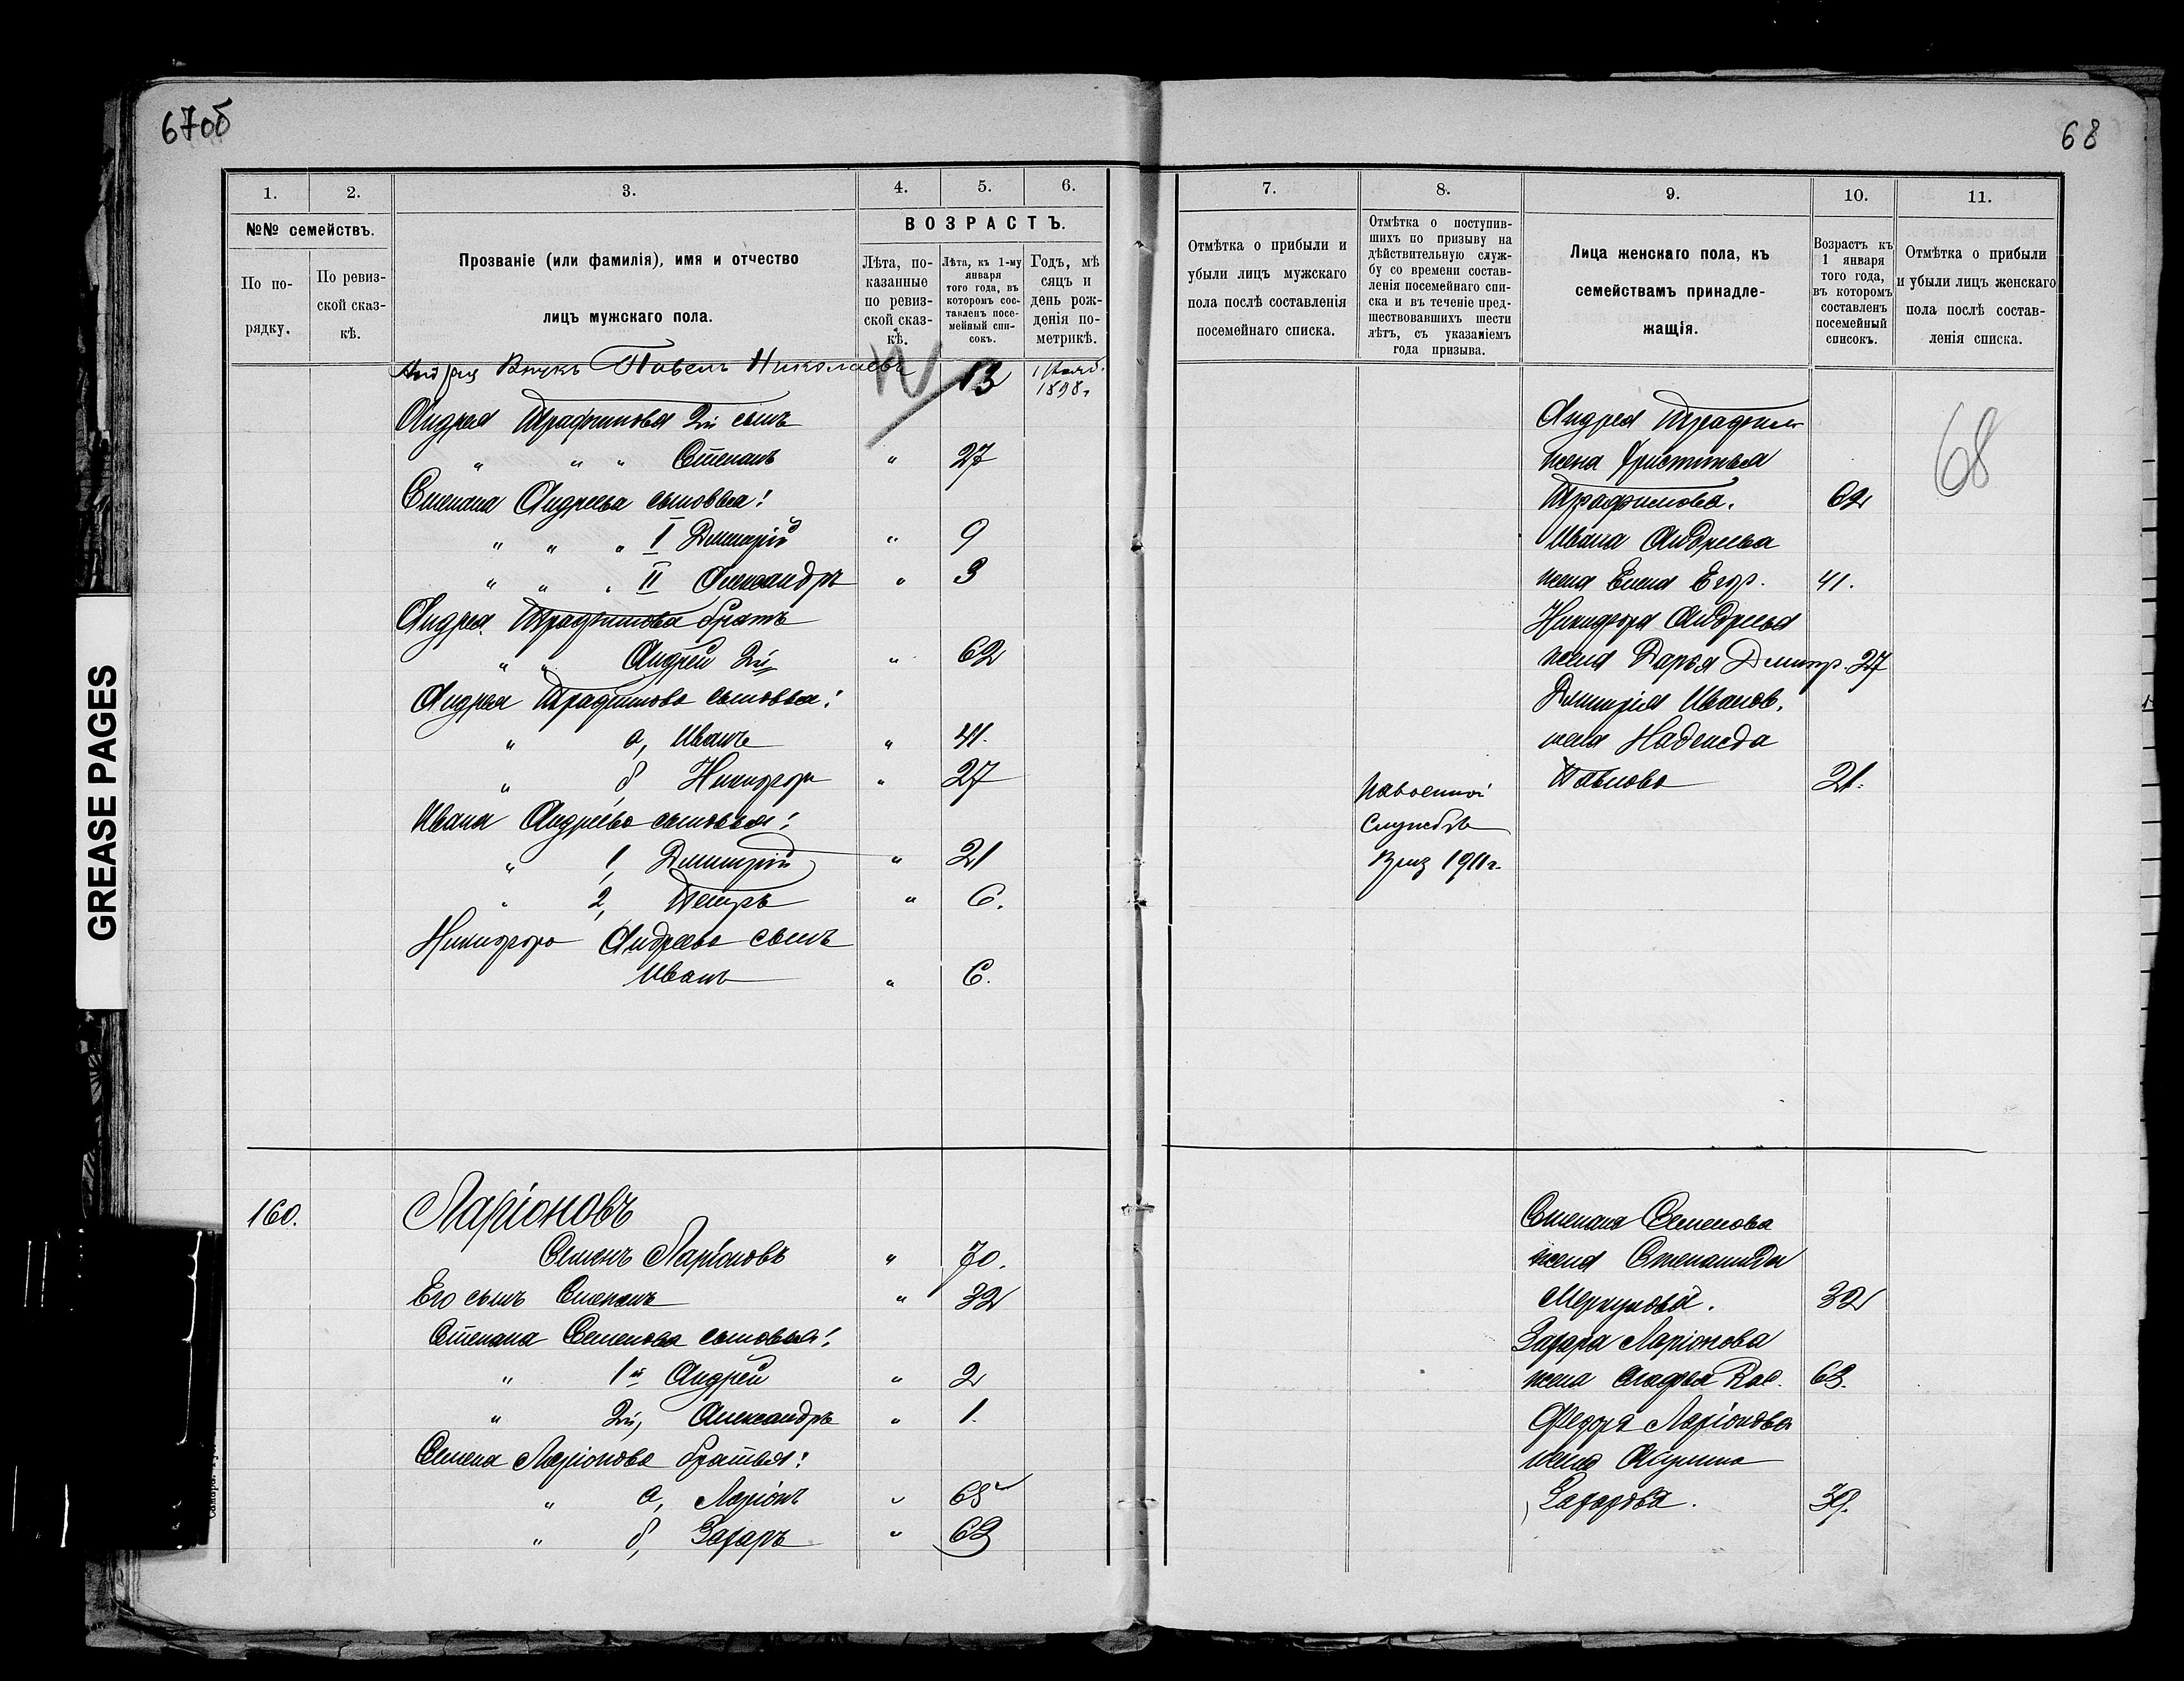 67об
68
1. 2. 3. 4. 5. 6.
№№ семействъ.
По по-
рядку.
По ревиз-
ской сказ-
кѣ.
Прозваніе (или фамилія), имя и отчество
лицъ мужскаго пола.
ВОЗРАСТЪ.
Лѣта, по-
казанные
по ревиз-
ской сказ-
кѣ.
Лѣта, къ 1-му
января
того года, въ
которомъ сос-
тавленъ посе-
мейный спи-
сокъ.
Годъ, мѣ
сяцъ и
день рож-
денія по-
метрикѣ.
Внукъ Павелъ Николаевъ 13 1898г
Андрея Трафимова 2й сынъ
" " " Степанъ " 27
Степана Андреева сыновья:
" " " I Дмитрій " 9
" " " II Александръ " 3
Андрея Трафимова братъ
" " Андрей 2й " 62
Андрея Трафимова сыновья:
" а, Иванъ " 41.
" б, Никифоръ " 27
Ивана Андреева сыновья:
" 1, Дмитрій " 21
" 2, Петръ " 6.
Никифора Андреева сынъ
Иванъ " 6.
160. Ларіоновъ
Семенъ Ларіоновъ " 70.
Его сынъ Степанъ " 32
Степана Семенова сыновья:
" 1й Андрей " 2
" 2й, Александръ " 1.
Семена Ларіонова братья:
" а, Ларіонъ " 65
" б, Захаръ " 63
7. 8. 9. 10. 11.
Отмѣтка о прибыли и
убыли лицъ мужскаго
пола послѣ составленія
посемейнаго списка.
Отмѣтка о поступив-
шихъ по призыву на
дѣйствительную служ-
бу со времени состав-
ленія посемейнаго спи-
ска и въ теченіе пред-
шествовавшихъ шести
лѣтъ, съ указаніемъ
года призыва.
Лица женскаго пола, къ
семействамъ принадле-
жащія.
Возрастъ къ
1 января
того года,
въ которомъ
составленъ
посемейный
списокъ.
Отмѣтка о прибыли
и убыли лицъ женскаго
пола послѣ состав-
ленія списка.
68
Андрея Трафим
жена Христинья
Трафимова. 62
Ивана Андреева
жена Елена Егор. 41.
Никифора Андреева
жена Дарья Дмитр. 27
Дмитрія Иванов.
жена Надежда
Павлова 21.
На военной
службѣ
1911г.
Степана Семенова
жена Степанида
Меркулова. 32
Захара Ларіонова
жена Агафья 63.
Федора Ларіонова
жена Акулина
Захарова. 39.
GREASE PAGES